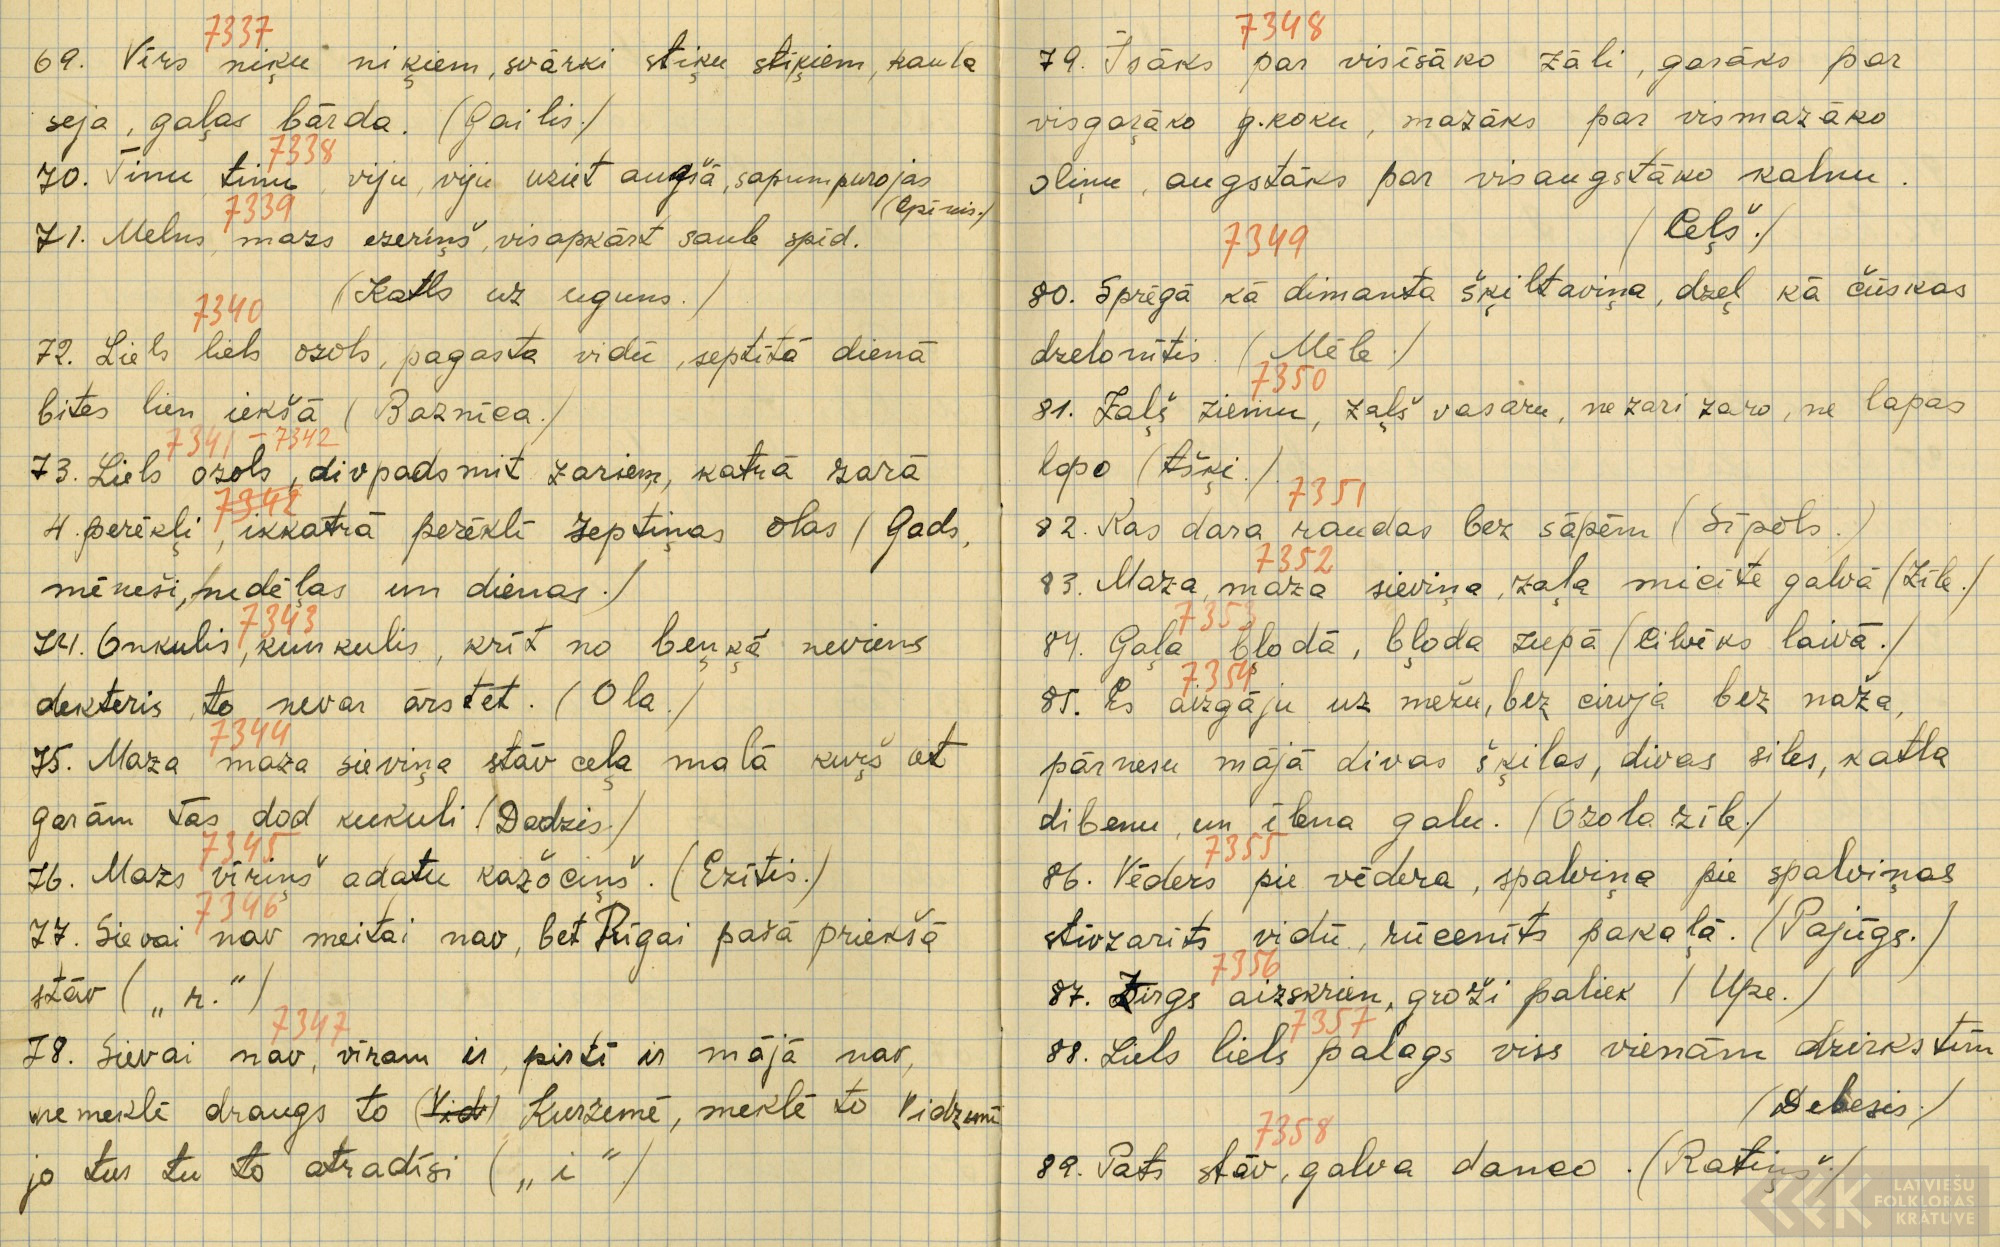 7337
69. Vīrs niķu niķiem, svārki stiķu stiķiem, kaula
seja, gaļas bārda. (Gailis.)
7338
70. Tinu tinu, viju, viju uziet augšā, sapumpurojas
(Apīnis.)
7339
71. Melns mazs ezeriņš, visapkārt saule spīd.
(Katls uz uguns.)
7340
72. Liels liels ozols, pagasta vidū, septītā dienā
bites lien iekšā (Baznīca.)
7341 – 7342
73. Liels ozols, divpadsmit zariem, katrā zarā
7342
4 perēkļi, ikkatrā perēklī septiņas olas (Gads,
mēneši, nedēļas un dienas.)
7343
74. Onkulis, kunkulis, krīt no beņķā neviens
dekteris to nevar ārstēt. (Ola.)
7344
75. Maza maza sieviņa stāv ceļa malā kuŗš iet
garām tās dod kukuli. (Dadzis.)
7345
76. Mazs vīriņš adatu kažociņš. (Ezītis.)
7346
77. Sievai nav meitai nav, bet Rīgai pašā priekšā
stāv („r.“)
7347
78. Sievai nav, vīram ir, pirtī ir mājā nav,
nemeklē draugs to (Vid) Kurzemē, meklē to Vidzemē
jo tur tu to atradīsi („i“)
7348
79. Īsāks par visīsāko zāli, garāks par
visgaŗāko g.koku, mazāks par vismazāko
oliņu, augstāks par visaugstāko kalnu.
(Ceļš.)
7349
80. Sprēgā kā dimanta šķiltaviņa, dzeļ kā čūskas
dzelonītis. (Mēle.)
7350
81. Zaļš ziemu, zaļš vasaru, ne zari zaro, ne lapas
lapo (Ašķi.)
7351
82. Kas dara raudas bez sāpēm (Sīpols.)
7352
83. Maza, maza sieviņa, zaļa micīte galvā (Zīle.)
7353
84. Gaļa bļodā, bļoda zupā (Cilvēks laivā.)
7354
85. Es aizgāju uz mežu, bez cirvja bez naža,
pārnesu mājā divas šķilas, divas siles, katla
dibenu, un īlena galu. (Ozola zīle.)
7355
86. Vēders pie vēdera, spalviņa pie spalviņas
stīvzarīts vidū, rūcenīts pakaļā. (Pajūgs.)
7356
87. Zirgs aizskrien, groži paliek (Upe.)
7357
88. Liels liels palags viss vienām dzirkstīm
(Debesis.)
7358
89. Pats stāv, galva danco. (Ratiņš.)
LATVIEŠU
FOLKLORAS
KRĀTUVE